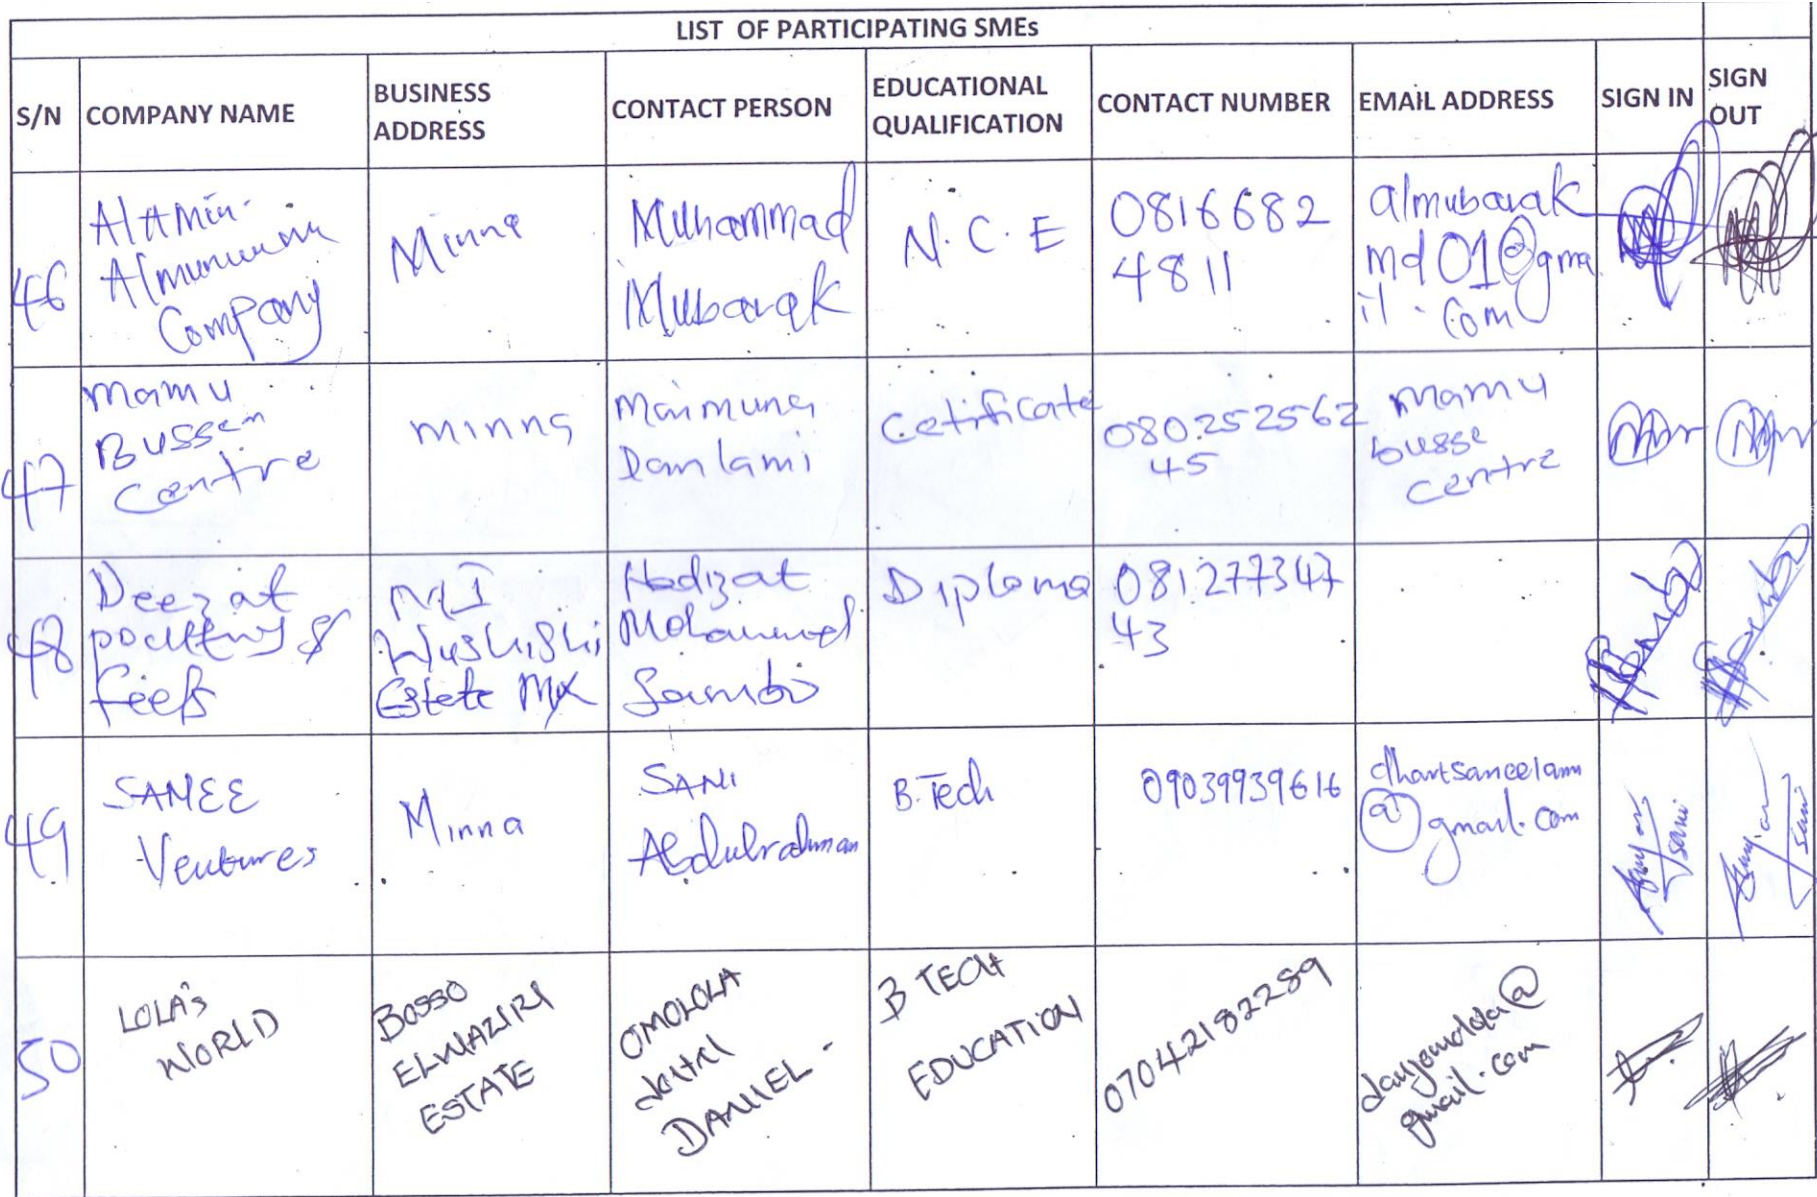 LIST OF PARTICIPATING SMEs
S/N COMPANY NAME BUSINESS ADDRESS CONTACT PERSON EDUCATIONAL QUALIFICATION CONTACT NUMBER EMAIL ADDRESS SIGN IN SIGN OUT
46
Alamin-
Almumini
Company
Minna
Muhammad
Mubarak
N.C.E
0816682
4811
almubarak
md01@gma
il.com
47
Mamu
Bussen
Centre
Minna
Maimuna
Danlami
Cetificate
080252562
45
mamu
busse
centre
48
Deezat
&
M.I
Wushishi
Estate MX
Hadizat
Mohammed
Sambo
Diploma
081277347
43
49
SANEE
Ventures
Minna
SANI
Abdulrahman
B.Tech
09039939616
dhartsaneelamm
@gmail.com
50
LOLA's
WORLD
BOSSO
ELWAZIRI
ESTATE
OMOLOLA
DANIEL
B TECH
EDUCATION
07042182289
gmail.com